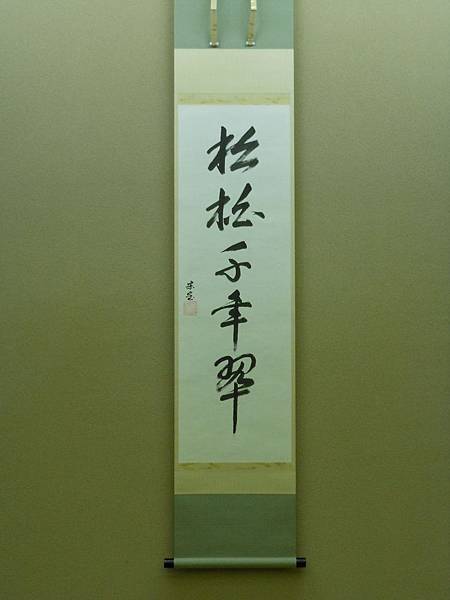 松千年翠